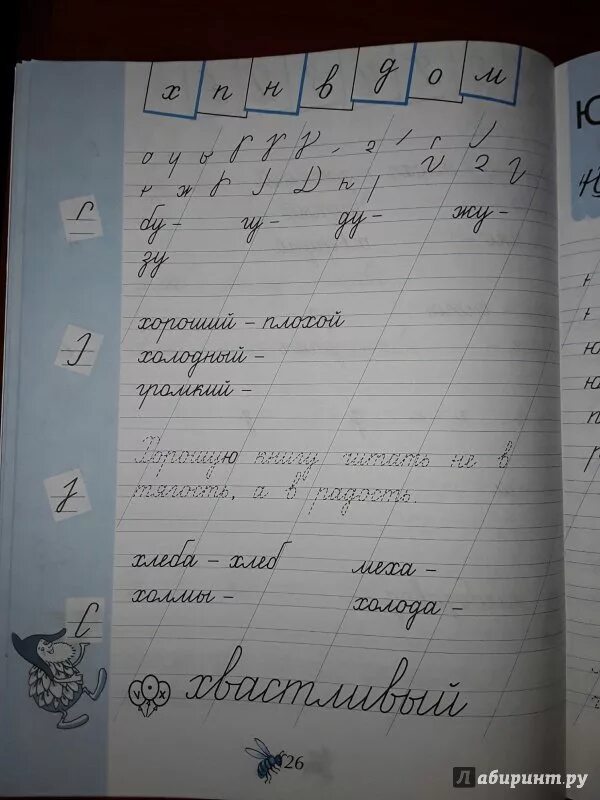 х п н в д о м
бу - гу - ду - жу -
зу
хороший - плохой
холодный -
громкий -
Хорошую книгу читать не в
тягость, а в радость.
хлеба - хлеб меха -
холмы - холода -
хвастливый
26
Лабиринт.ру